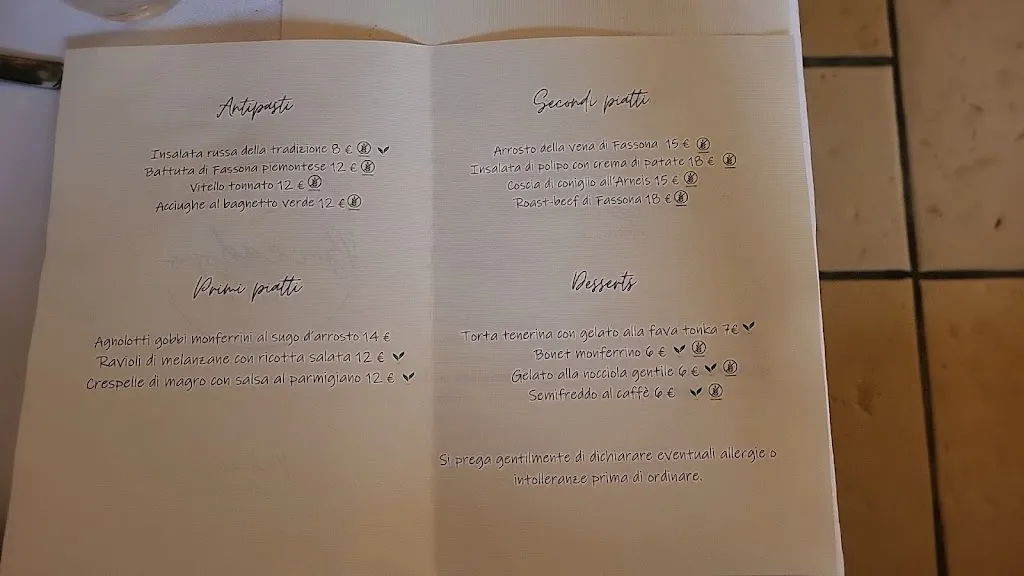 Antipasti
Insalata russa della tradizione 8 €
Battuta di Fassona piemontese 12 €
Vitello tonnato 12 €
Acciughe al bagnetto verde 12 €
Primi piatti
Agnolotti gobbi monferrini al sugo d'arrosto 14 €
Ravioli di melanzane con ricotta salata 12 €
Crespelle di magro con salsa al parmigiano 12 €
Secondi piatti
Arrosto della vena di Fassona 15 €
Insalata di polipo con crema di patate 18 €
Coscia di coniglio all'Arneis 15 €
Roast-beef di Fassona 18 €
Desserts
Torta tenerina con gelato alla fava tonka 7€
Bonet monferrino 6 €
Gelato alla nocciola gentile 6 €
Semifreddo al caffè 6 €
Si prega gentilmente di dichiarare eventuali allergie o
intolleranze prima di ordinare.